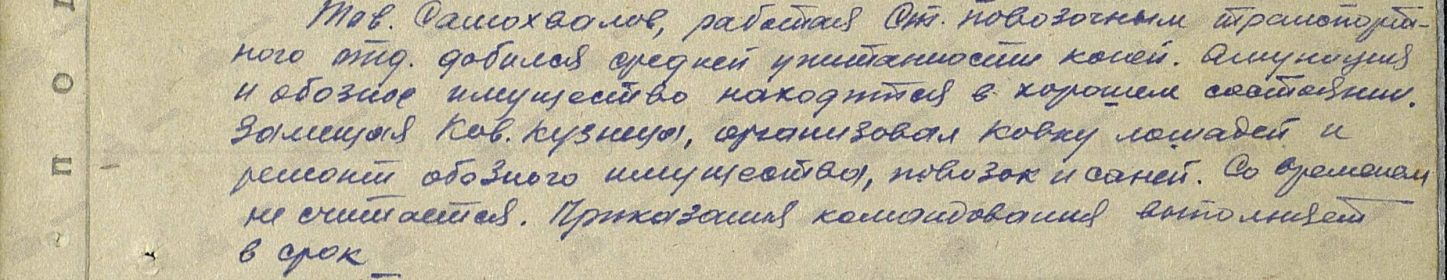 Тов. Самохвалов, работая Ст. повозочным транспорт-
ного отд. добился средней упитанности коней. Амуниция
и обозное имущество находятся в хорошем состоянии.
Замещая Ков. Кузнеца, организовал ковку лошадей и
ремонт обозного имущества, повозок и саней. Со временем
не считается. Приказания командования выполняет
в срок